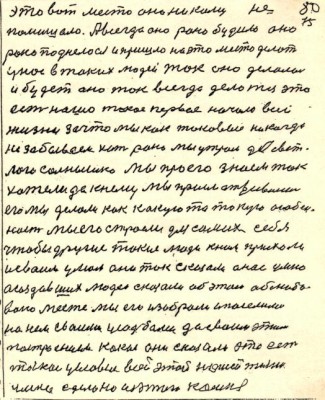 это вот место оно никому не 80
помишало. А всегда оно рано будило оно 75
рано поднелося и пришло на это место делат
у нас в таких людей так оно делалос
и будет оно так всегда делатца это
ест нашо такое первое начало всей
жизни за что мы как таковые никогда
не забываем хот рано мы утром до свет
лого солнышко мы просто знаем так
хатели да к нему мы пришли
его мы делали как какую та такую особен
ност мы его строили для самих себя
чтобы другие такие люди к нам приходили
и своим умом они так сказали о нас умно
создавших людей сказали об этом
вано месте мы его избрали и поселили
на нем своими да своим этим
построением какое они сказали это ест
такое условия всей этой нашей жизни
сделано из этого камня